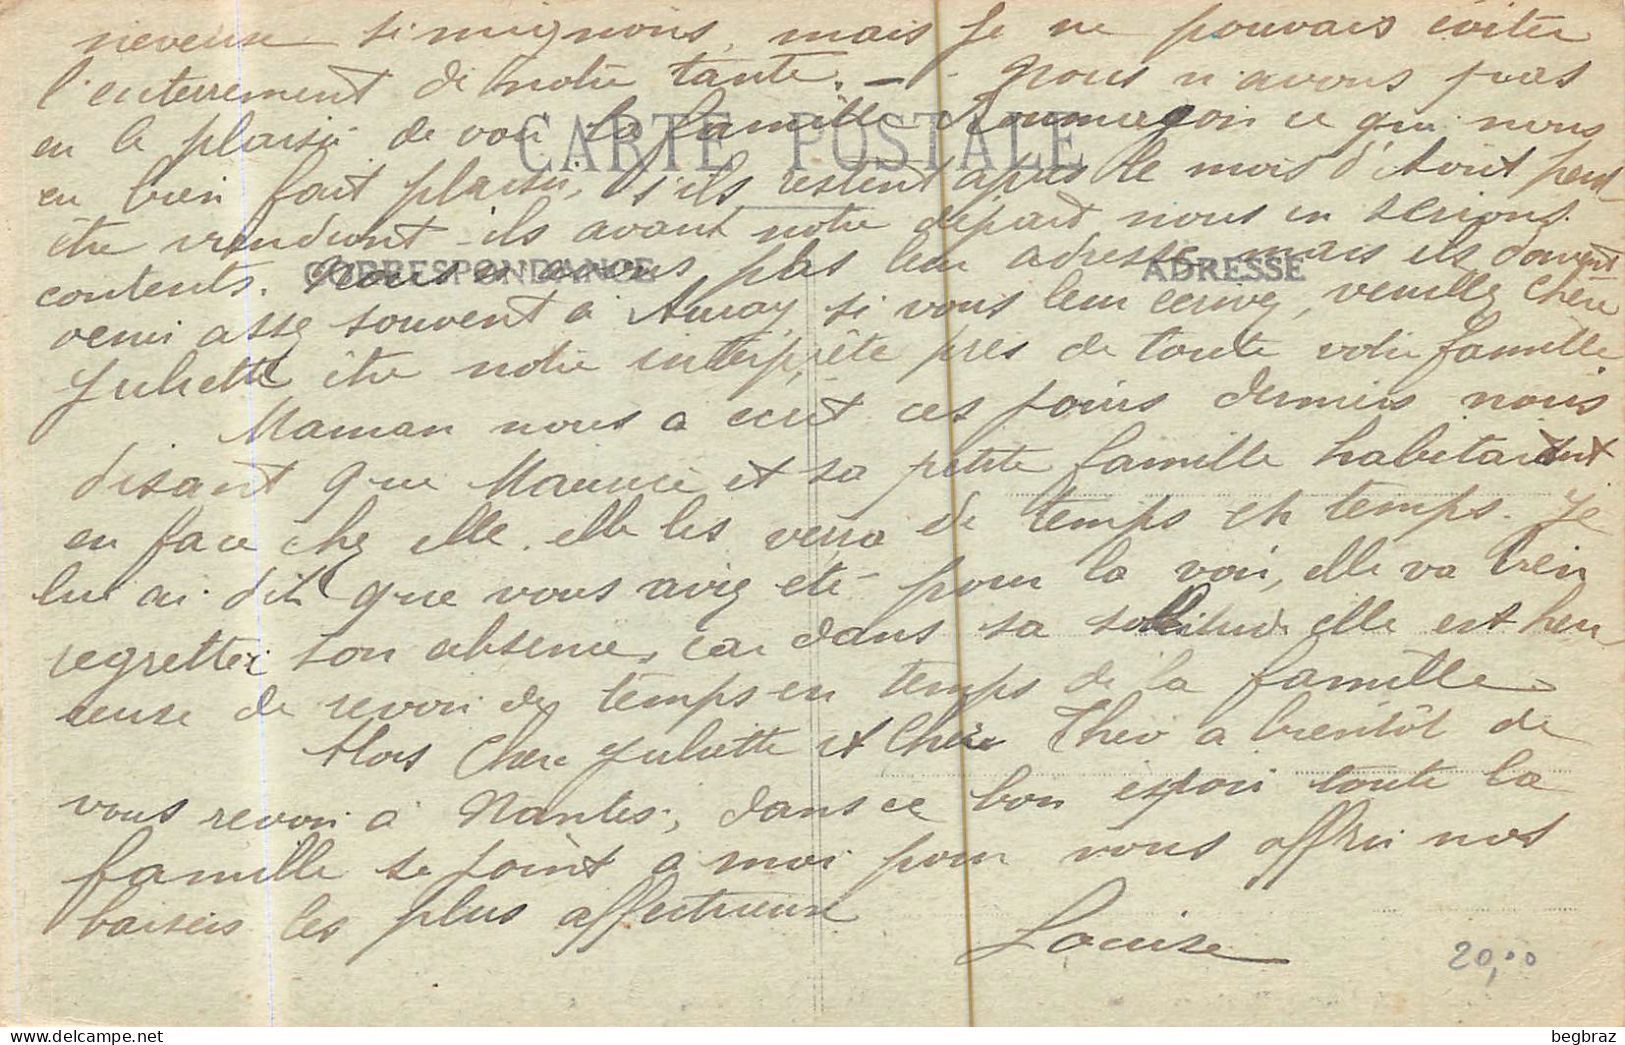 neveux si mignons, mais je ne pouvais éviter
l'enterrement de notre tante. — Nous n'avons pas
eu le plaisir de voir la famille ce qui nous
CARTE POSTALE
eu bien fait plaisir, s'ils restent après le mois d'Août peut
être viendront-ils avant notre départ nous en serions
contents. Nous n'avons plus leur adresse mais ils doivent
CORRESPONDANCE
ADRESSE
venir assez souvent à si vous leur écrivez, veuillez Chère
Juliette être notre interprète près de toute votre famille.
Maman nous a écrit ces jours derniers nous
disant que Maurice et sa petite famille habitant
en face chez elle, elle les verra de temps en temps. Je
lui ai dit que vous aviez été pour la voir, elle va bien
regretter son absence, car dans sa solitude elle est heu
reuse de revoir de temps en temps de la famille.
Alors Chère Juliette et Cher Théo a bientôt de
vous revoir à Nantes, dans ce bon espoir toute la
famille se joint a moi pour vous offrir nos
baisers les plus affectueux
Louise
20,00
begbraz